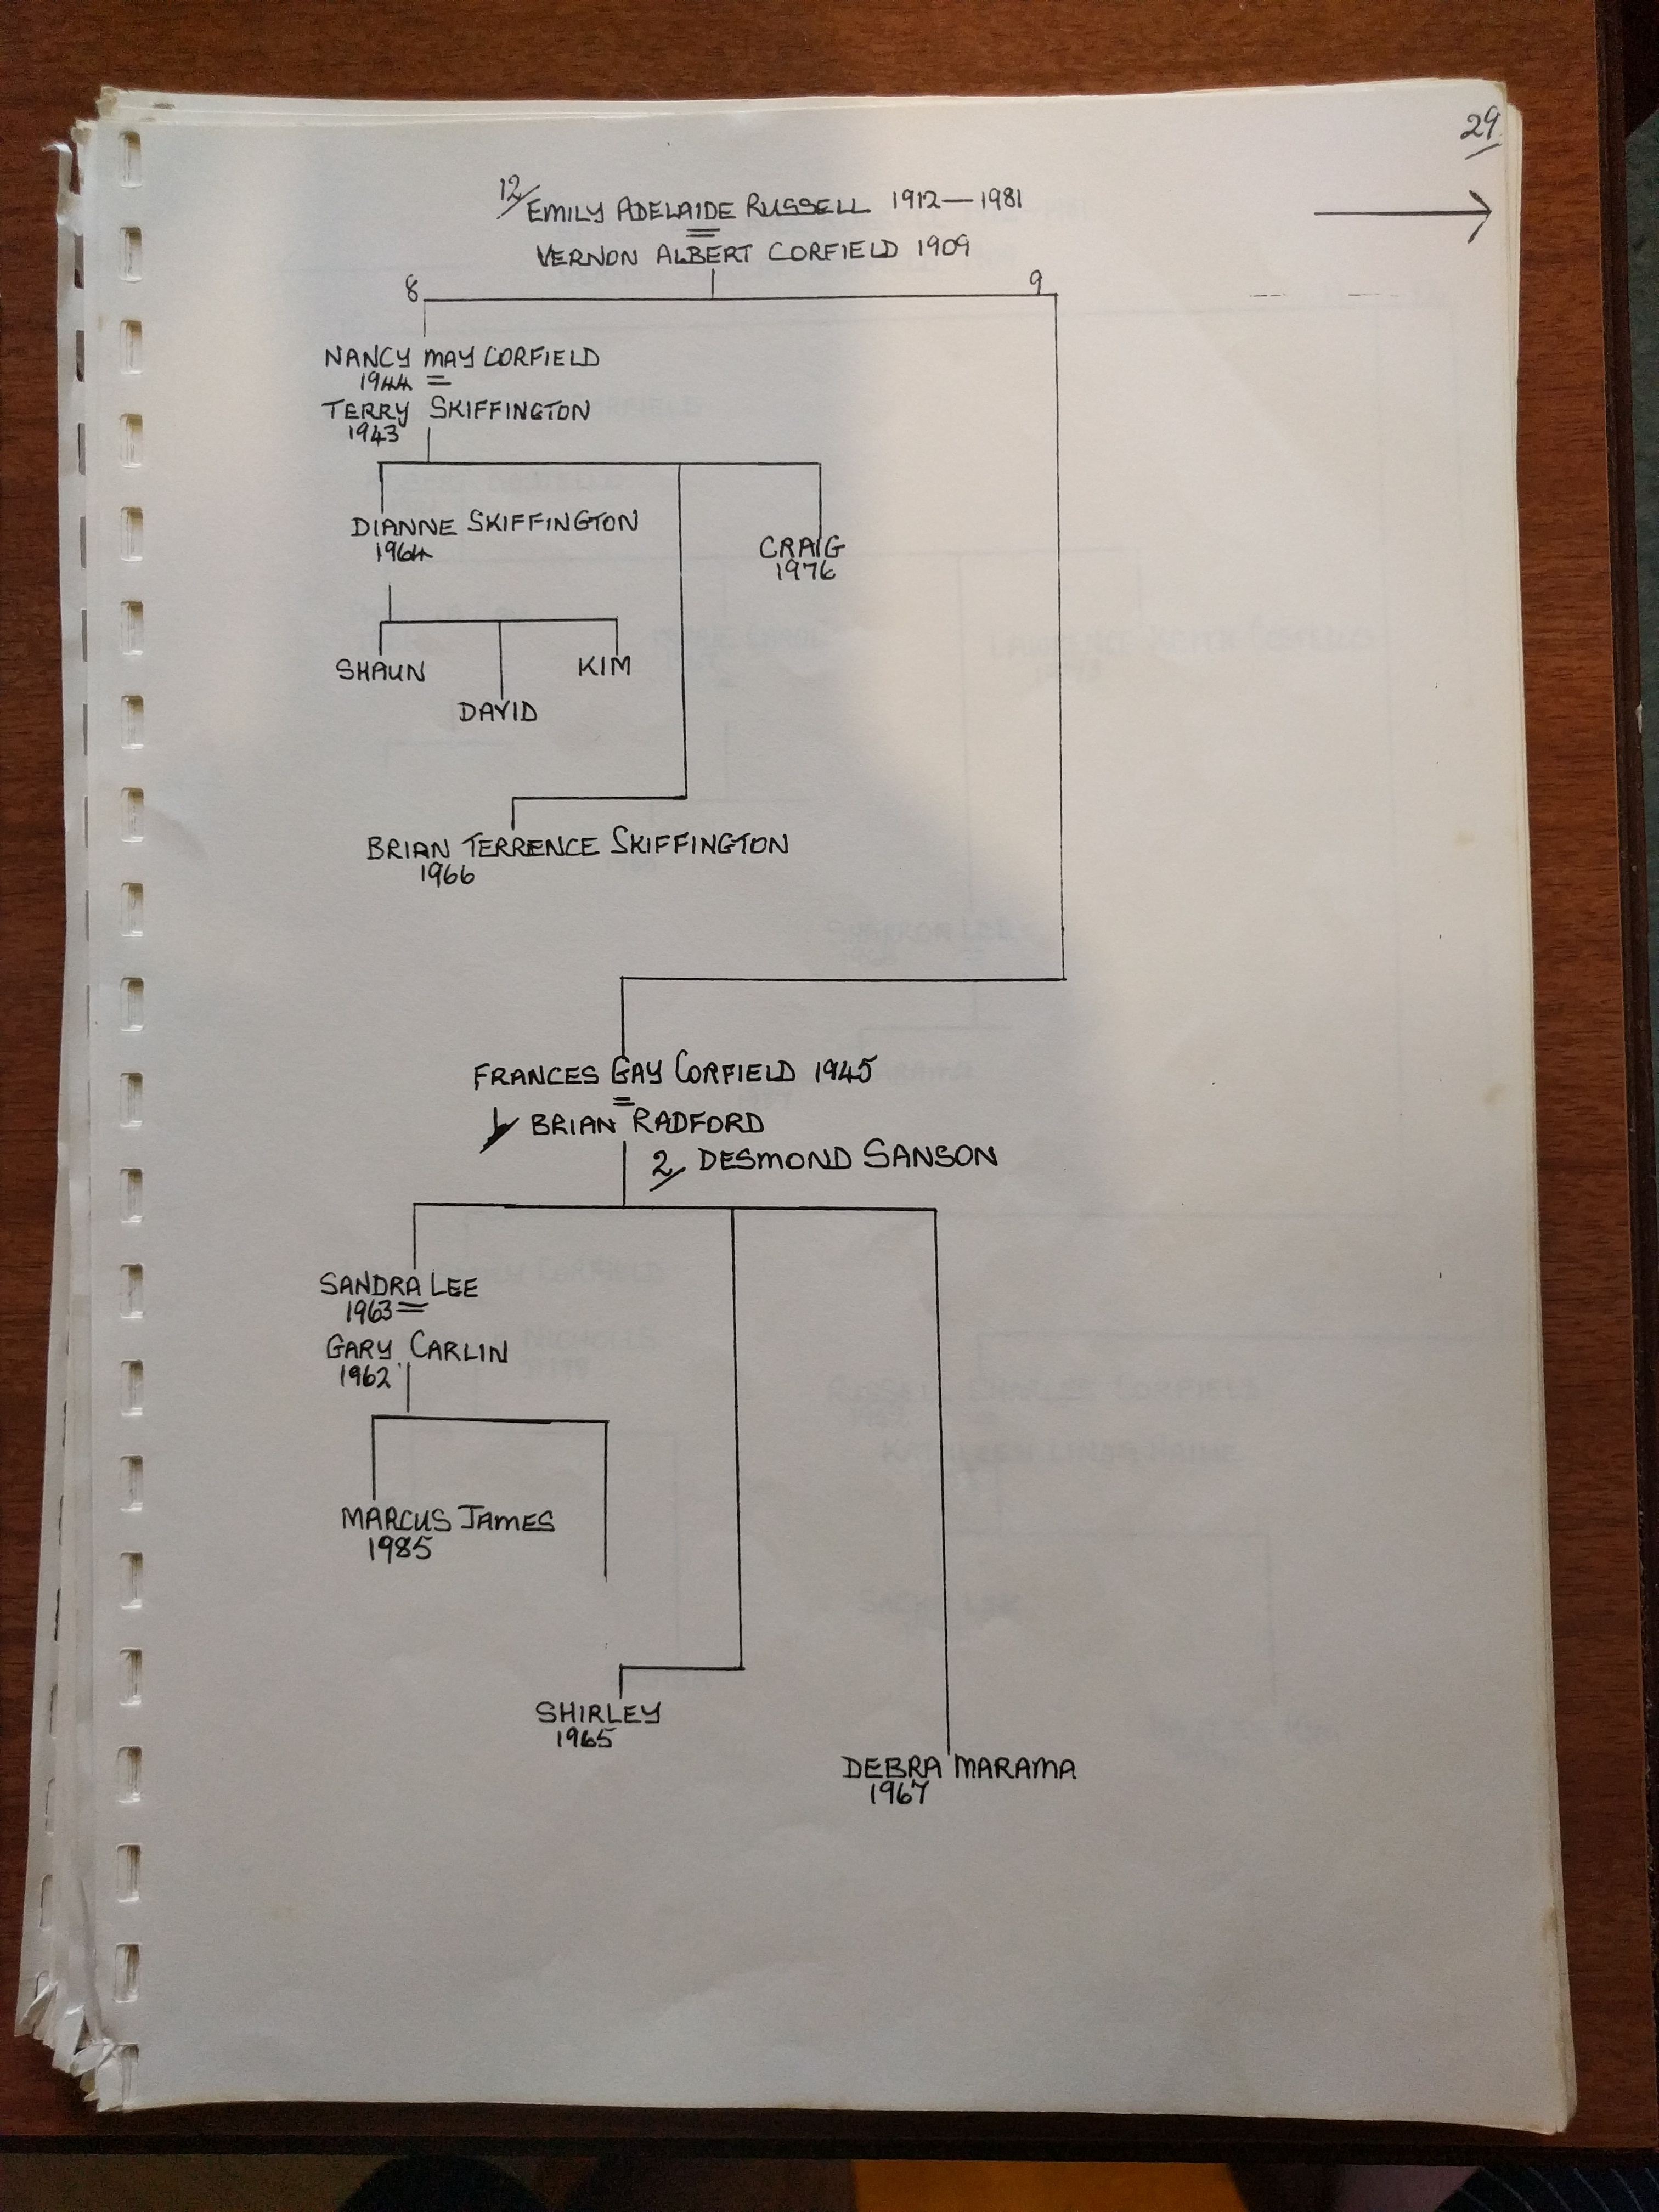 29
12/ EMILY ADELAIDE RUSSELL 1912—1981
=
VERNON ALBERT CORFIELD 1909
8 9
NANCY MAY CORFIELD
1944 =
TERRY SKIFFINGTON
1943
DIANNE SKIFFINGTON
1964
CRAIG
1976
SHAUN
KIM
DAVID
BRIAN TERRENCE SKIFFINGTON
1966
FRANCES GAY CORFIELD 1945
=
1/ BRIAN RADFORD
2/ DESMOND SANSON
SANDRA LEE
1963 =
GARY CARLIN
1962
MARCUS JAMES
1985
SHIRLEY
1965
DEBRA MARAMA
1967